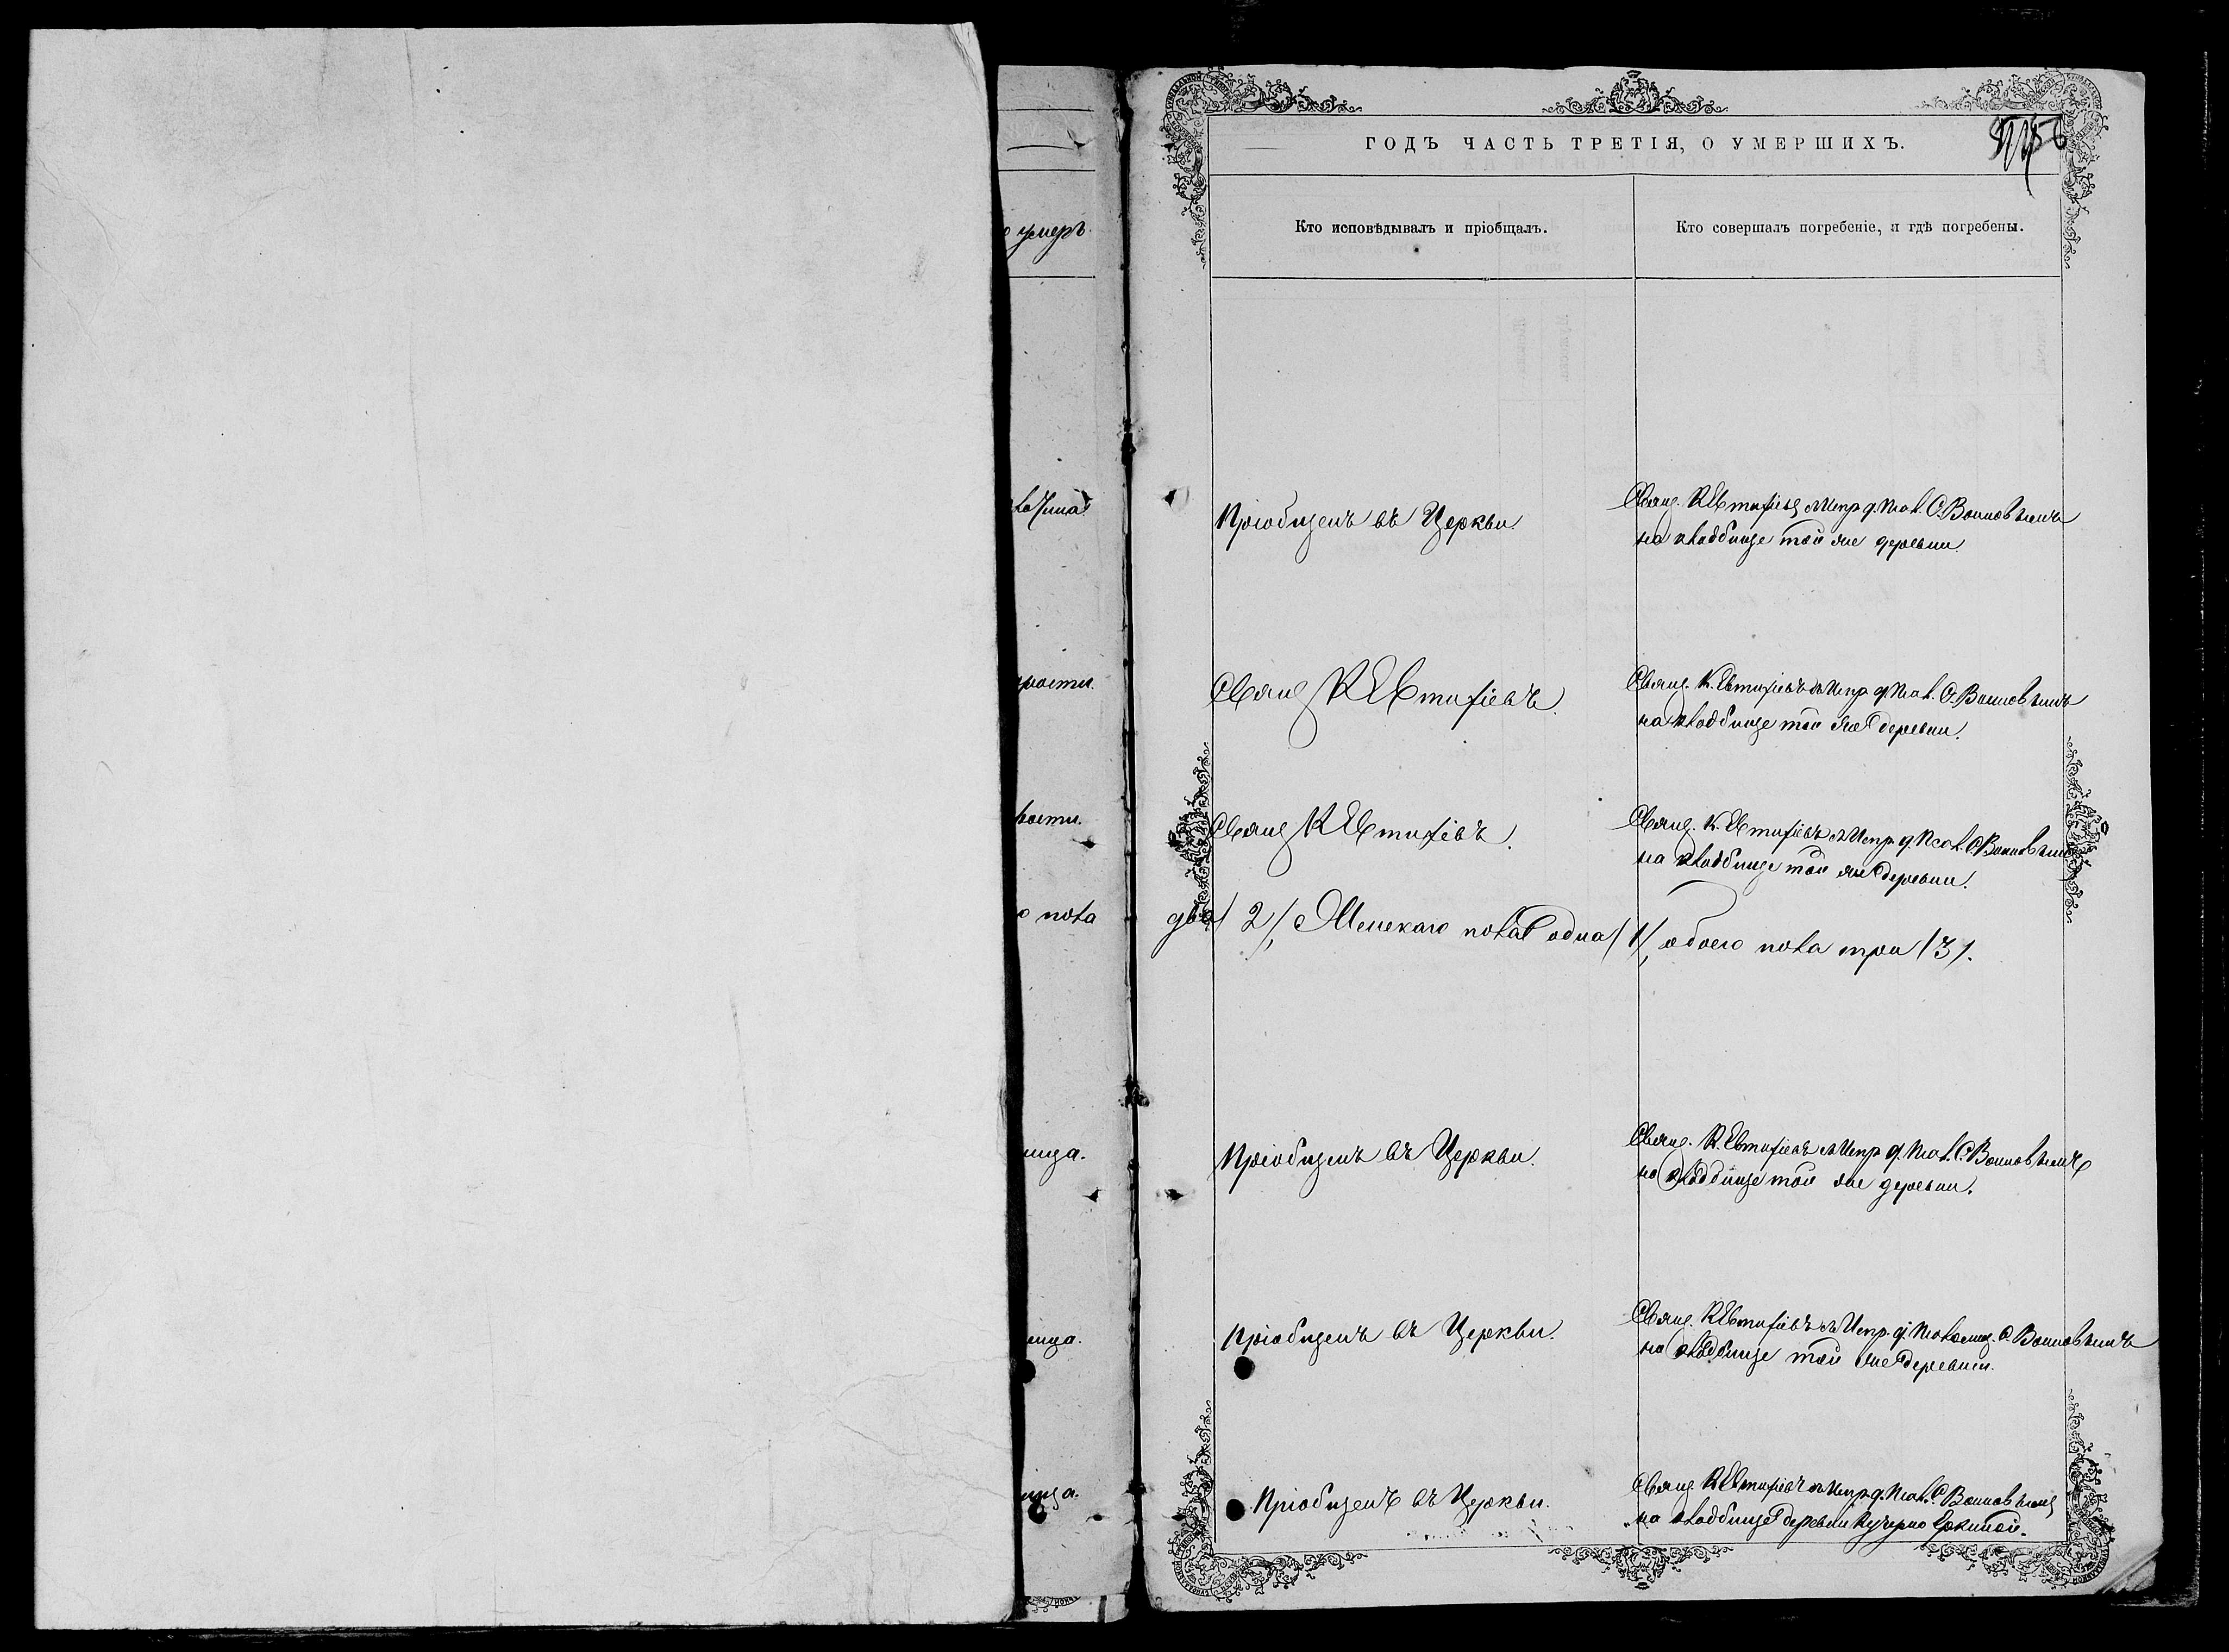 ГОДЪ ЧАСТЬ ТРЕТІЯ, О УМЕРШИХЪ.
умеръ
Кто исповѣдывалъ и пріобщалъ.
Кто совершалъ погребеніе, и гдѣ погребены.
Пріобщенъ въ Церкви.
Свящ. К Евтифіев с Испр. д. Псал. С. Воиновымъ
на кладбище той же деревни.
Свящ К Евтифіевъ.
Свящ. К. Евтифіевъ съ Испр д. Псал. С. Воиновымъ
на кладбище той же деревни.
Свящ К Евтифіевъ.
Свящ. К. Евтифіевъ с Испр. д. Псал. С Воиновым
на кладбище той же деревни.
пола два / 2/, Женскаго пола одна /1/, обоего пола три /3/.
ица.
Пріобщенъ въ Церкви.
Свящ. К. Евтифіевъ с Испр д. Псал. С. Воиновымъ
на кладбище той же деревни.
ица.
Пріобщенъ въ Церкви.
Свящ. К Евтифіевъ съ Испр. д. Псаломщ. С. Воиновымъ
на кладбище той же деревни.
ица.
Пріобщенъ въ Церкви.
Свящ К Евтифіевъ с Испр. д. Псал. С Воиновым
на кладбище деревни